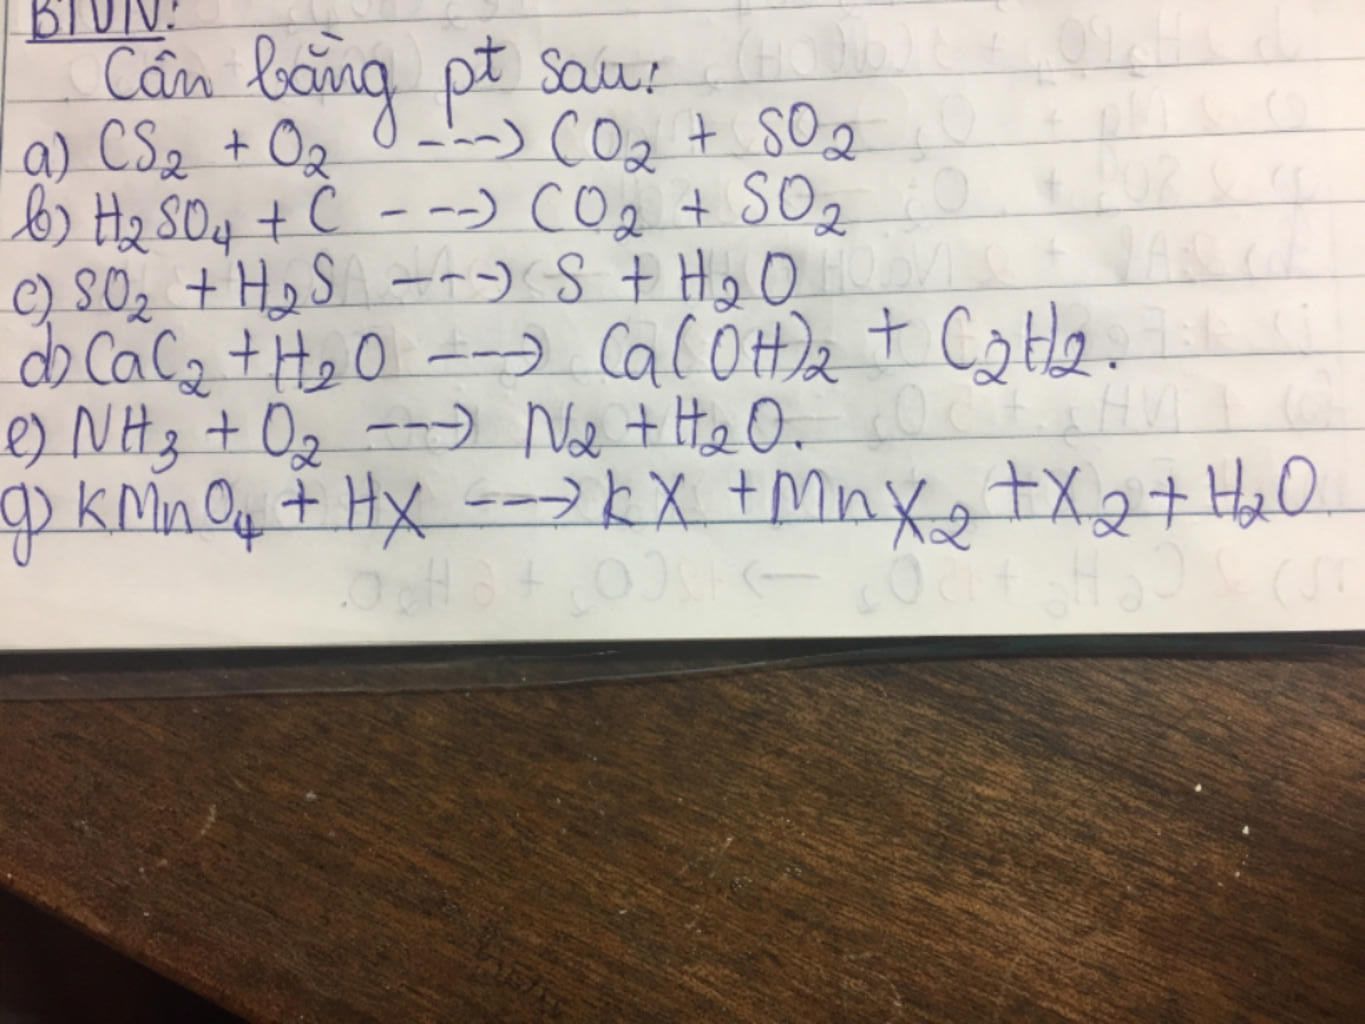 BTVN:
Cân bằng pt sau:
a) CS₂ + O₂ ---> CO₂ + SO₂
b) H₂SO₄ + C ---> CO₂ + SO₂
c) SO₂ + H₂S ---> S + H₂O
d) CaC₂ + H₂O ---> Ca(OH)₂ + C₂H₂.
e) NH₃ + O₂ ---> N₂ + H₂O.
g) KMnO₄ + HX ---> KX + MnX₂ + X₂ + H₂O